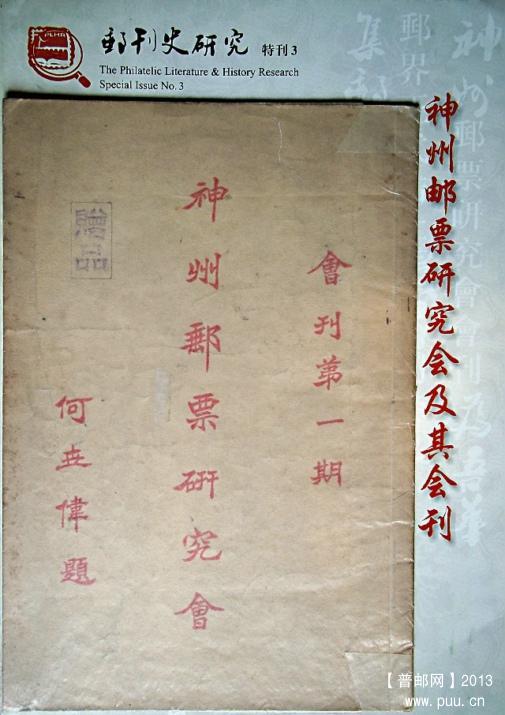 郵刊史研究 特刊3
The Philatelic Literature & History Research
Special Issue No. 3
神州邮票研究会及其会刊
會刊第一期
神州郵票研究會
贈品
何世偉題
【普邮网】2013
www.puu.cn